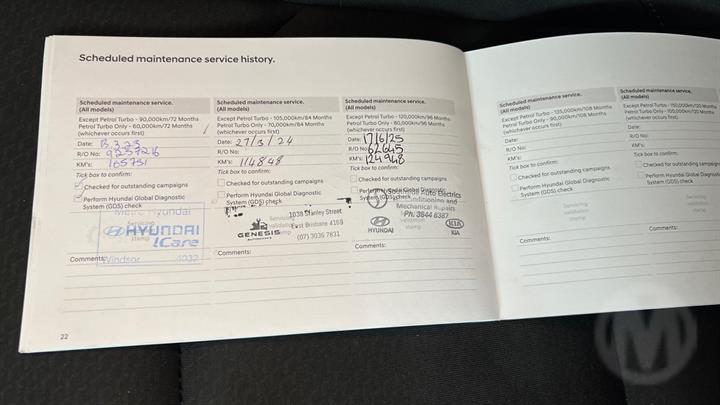 Scheduled maintenance service history.
Scheduled maintenance service.
(All models)
Except Petrol Turbo - 90,000km/72 Months
Petrol Turbo Only - 60,000km/72 Months
(whichever occurs first)
Date:
R/O No: 9257216
KM's:
Tick box to confirm:
Checked for outstanding campaigns
Perform Hyundai Global Diagnostic
System (GDS) check
Metro Hyundai
HYUNDAI
iCare
Windsor 4032
Comments:
Scheduled maintenance service.
(All models)
Except Petrol Turbo - 105,000km/84 Months
Petrol Turbo Only - 70,000km/84 Months
(whichever occurs first)
Date: 27/3/24
R/O No:
KM's: 114848
Tick box to confirm:
Checked for outstanding campaigns
Perform Hyundai Global Diagnostic
System (GDS) check
GENESIS
1038 Stanley Street
East Brisbane 4169
(07) 3036 7831
Comments:
Scheduled maintenance service.
(All models)
Except Petrol Turbo - 120,000km/96 Months
Petrol Turbo Only - 80,000km/96 Months
(whichever occurs first)
Date: 17/6/25
R/O No: 62645
KM's: 124948
Tick box to confirm:
Checked for outstanding campaigns
Perform Hyundai Global Diagnostic
System (GDS) check
Auto Electrics
Mechanical Repairs
Ph: 3844 6387
HYUNDAI
KIA
KIA
Comments:
22
Scheduled maintenance service.
(All models)
Except Petrol Turbo - 135,000km/108 Months
Petrol Turbo Only - 90,000km/108 Months
(whichever occurs first)
Date:
R/O No:
KM's:
Tick box to confirm:
Checked for outstanding campaigns
Perform Hyundai Global Diagnostic
System (GDS) check
Servicing
validation
stamp
Comments:
Scheduled maintenance service.
(All models)
Except Petrol Turbo - 150,000km/120 Months
Petrol Turbo Only - 100,000km/120 Months
(whichever occurs first)
Date:
R/O No:
KM's:
Tick box to confirm:
Checked for outstanding campaigns
Perform Hyundai Global Diagnostic
System (GDS) check
Servicing
validation
stamp
Comments:
M